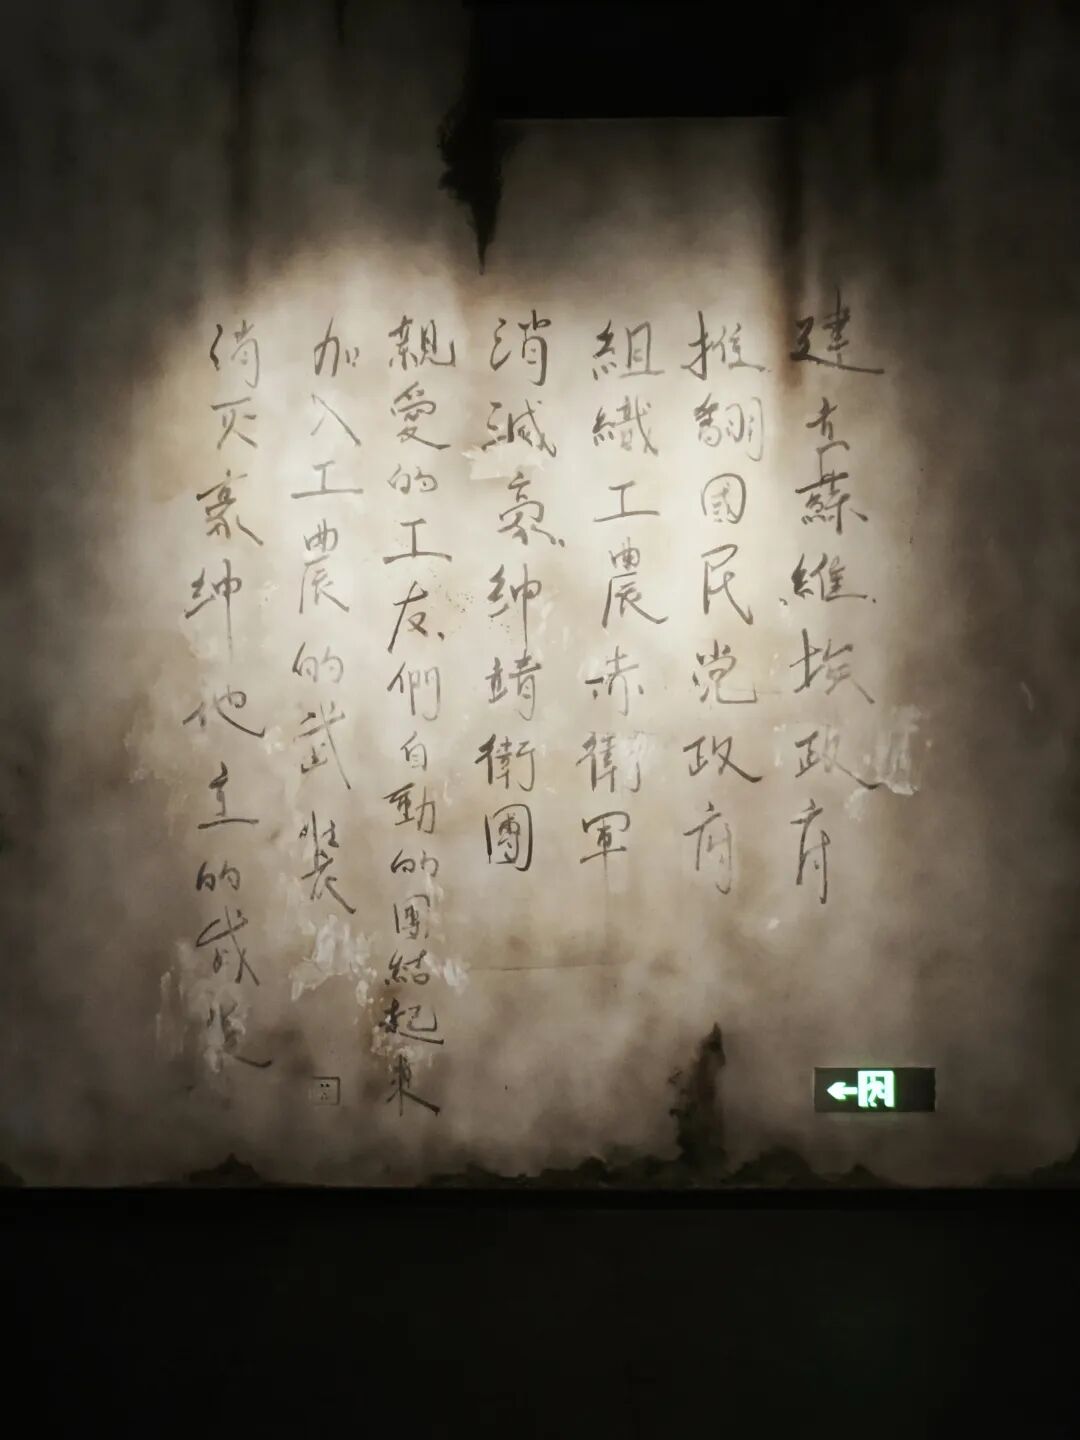 建立蘇維埃政府
推翻國民党政府
組織工農赤衛軍
消滅豪紳靖衛團
親愛的工友們自動的團結起來
加入工農的武裝
消灭豪紳他主的成